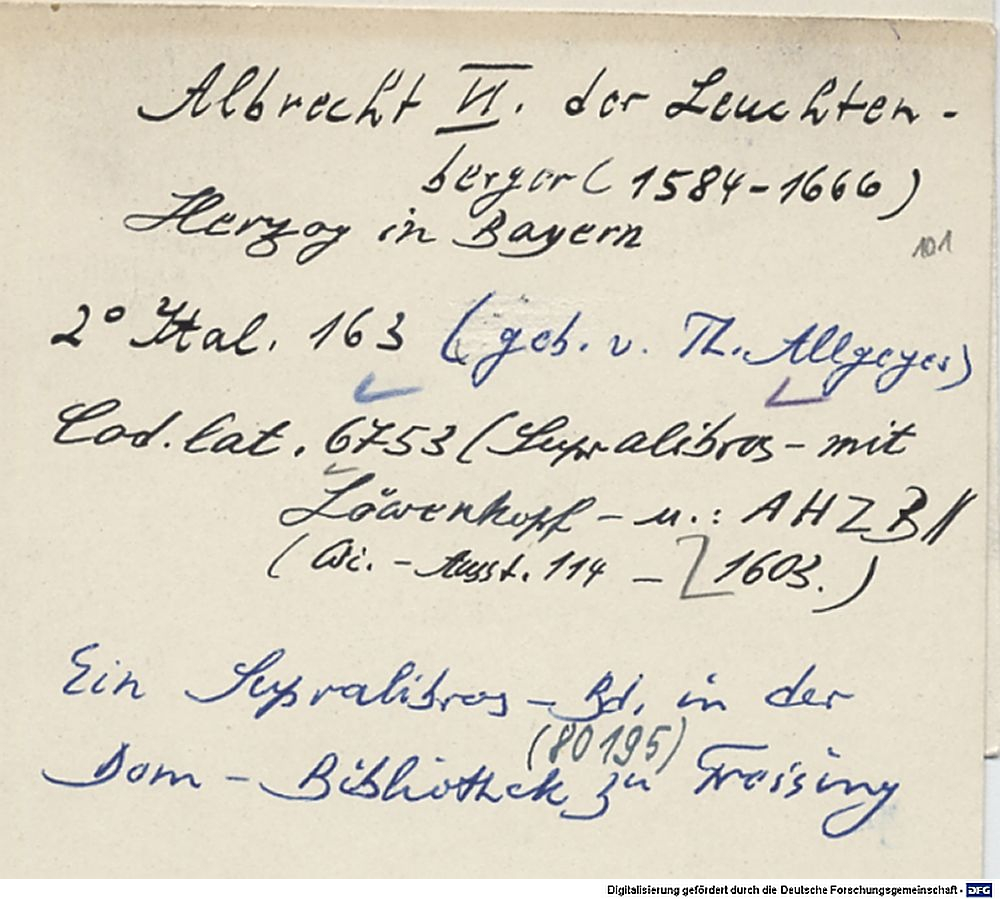 Albrecht VI. der Leuchten-
berger (1584-1666)
Herzog in Bayern
101
2° Ital. 163 (geb. v. Th. Allgeyer)
Cod. lat. 6753 (Supralibros - mit
Löwenkopf - u.: A H Z B //
( Wi. - Ausst. 114 - [ 1603. )
Ein Supralibros - Bd. in der
(80195)
Dom - Bibliothek zu Freising
Digitalisierung gefördert durch die Deutsche Forschungsgemeinschaft - DFG